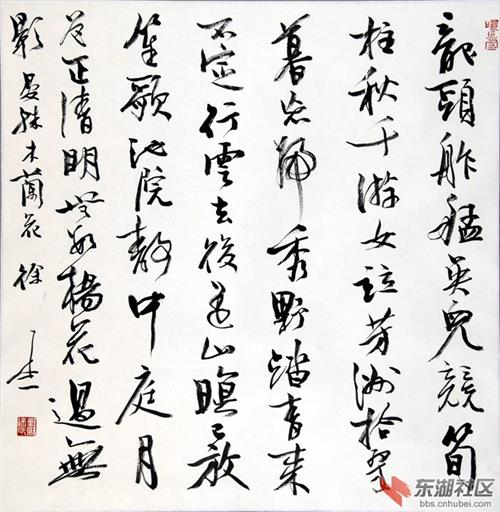 龍頭舴艋吳兒競筍
柱秋千游女竝芳洲拾翠
暮忘歸秀野踏青來
不定行雲去後遙山暝已放
笙歌池院靜中庭月
色正清明無數楊花過無
影 晏殊木蘭花 徐
东湖社区
bbs.cnhubei.com